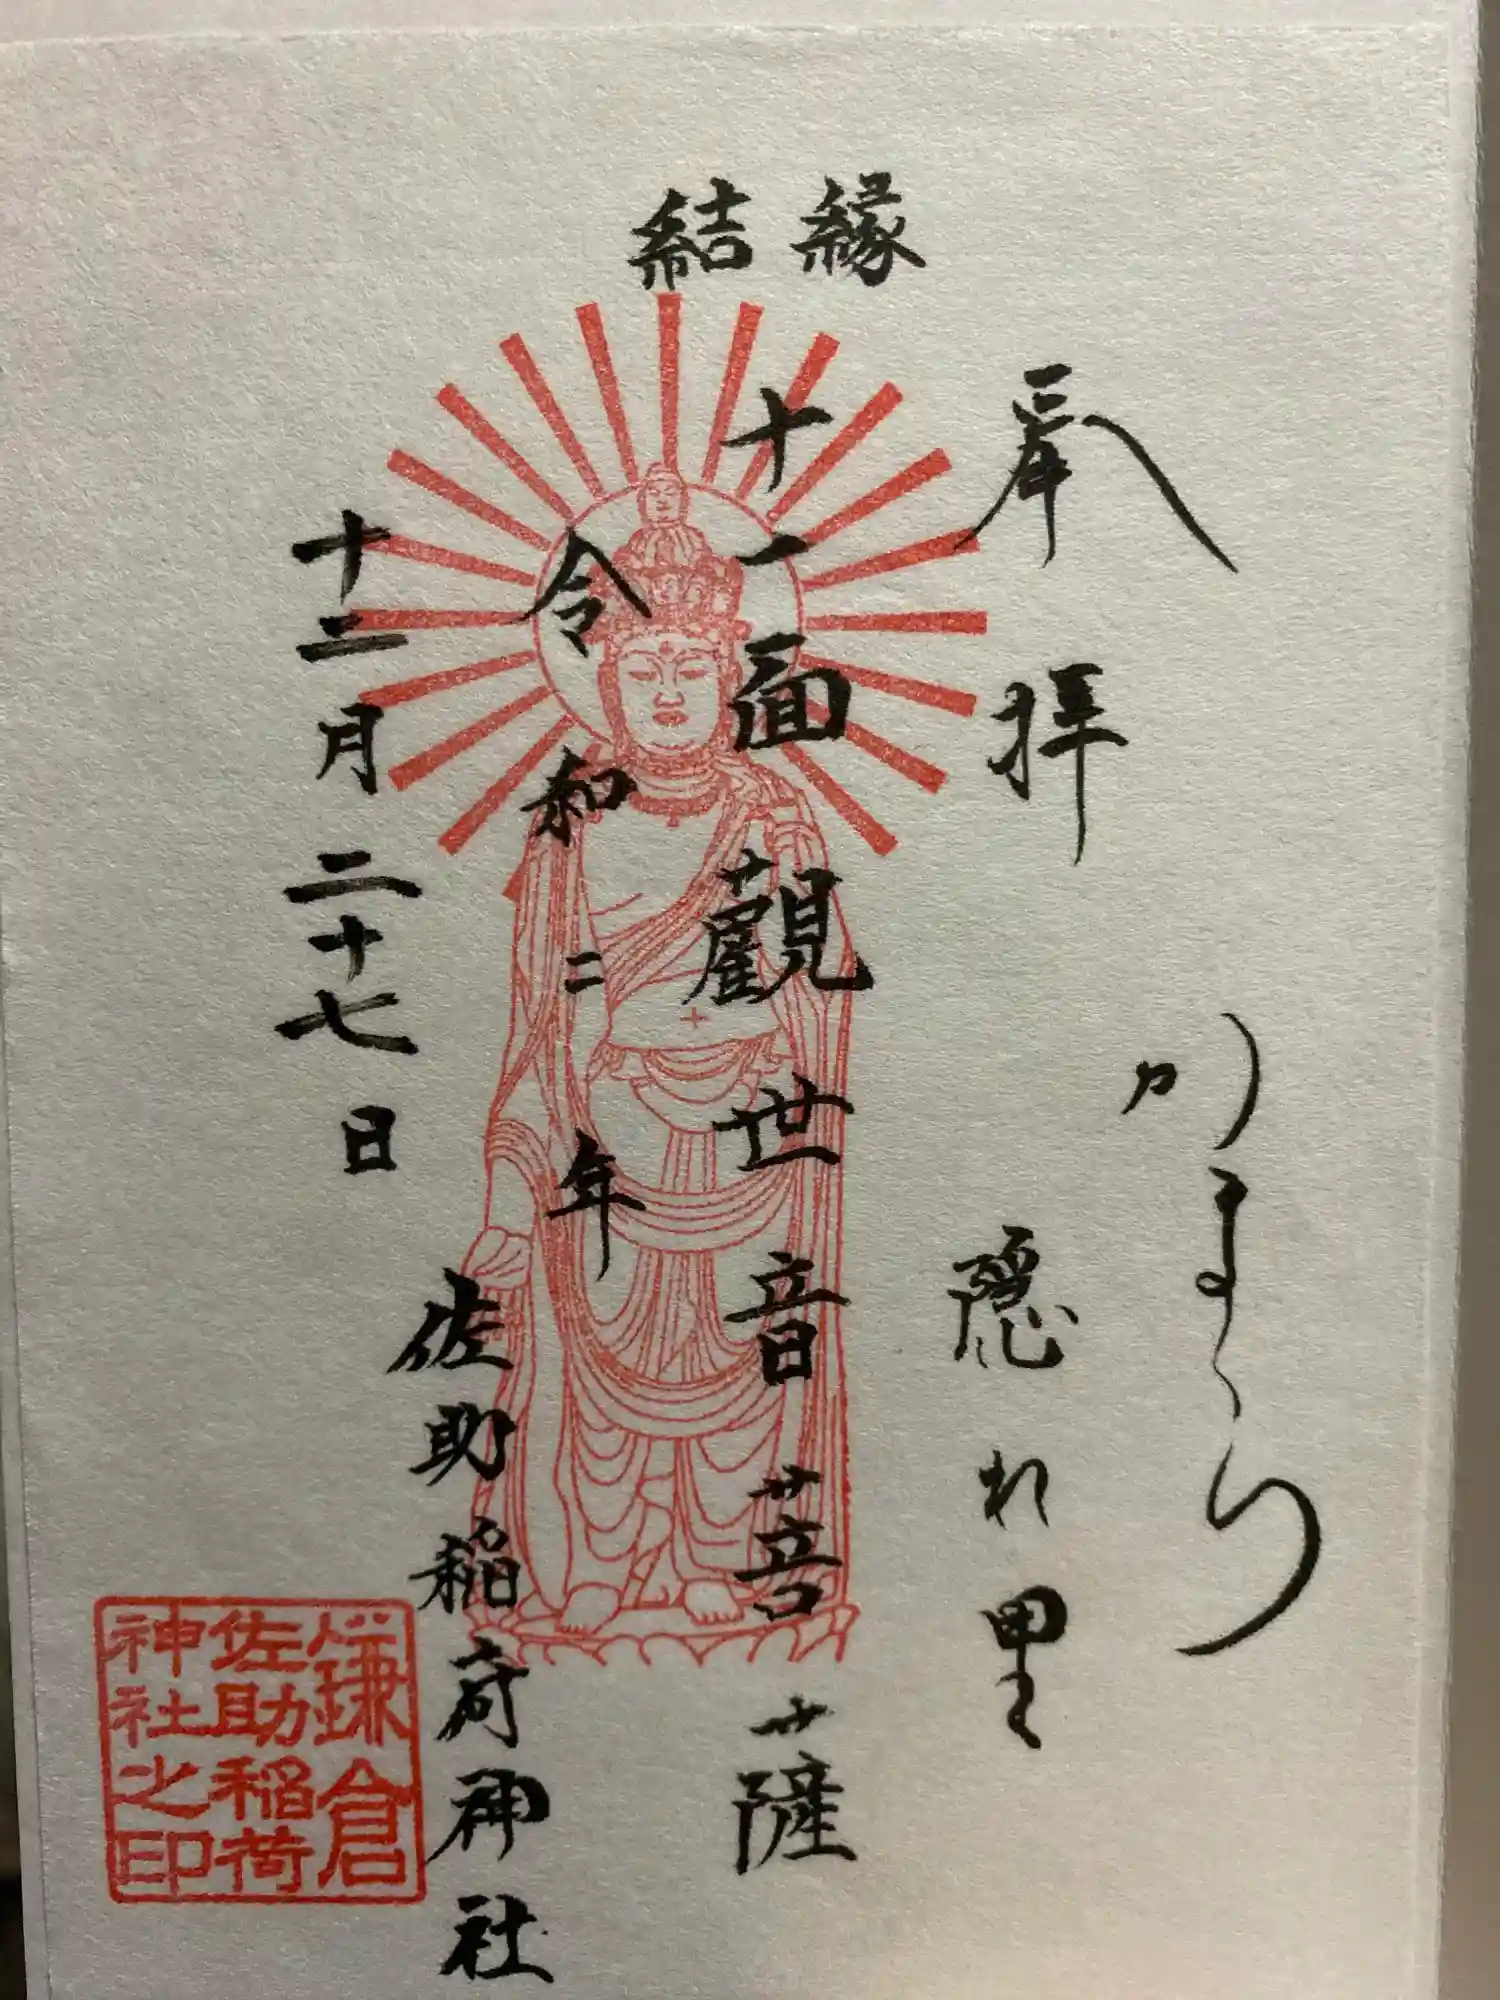 結縁
奉拝
かまくら
隠れ里
十一面觀世音菩薩
令和二年
十二月二十七日
佐助稲荷神社
鎌倉
佐助稲荷
神社之印